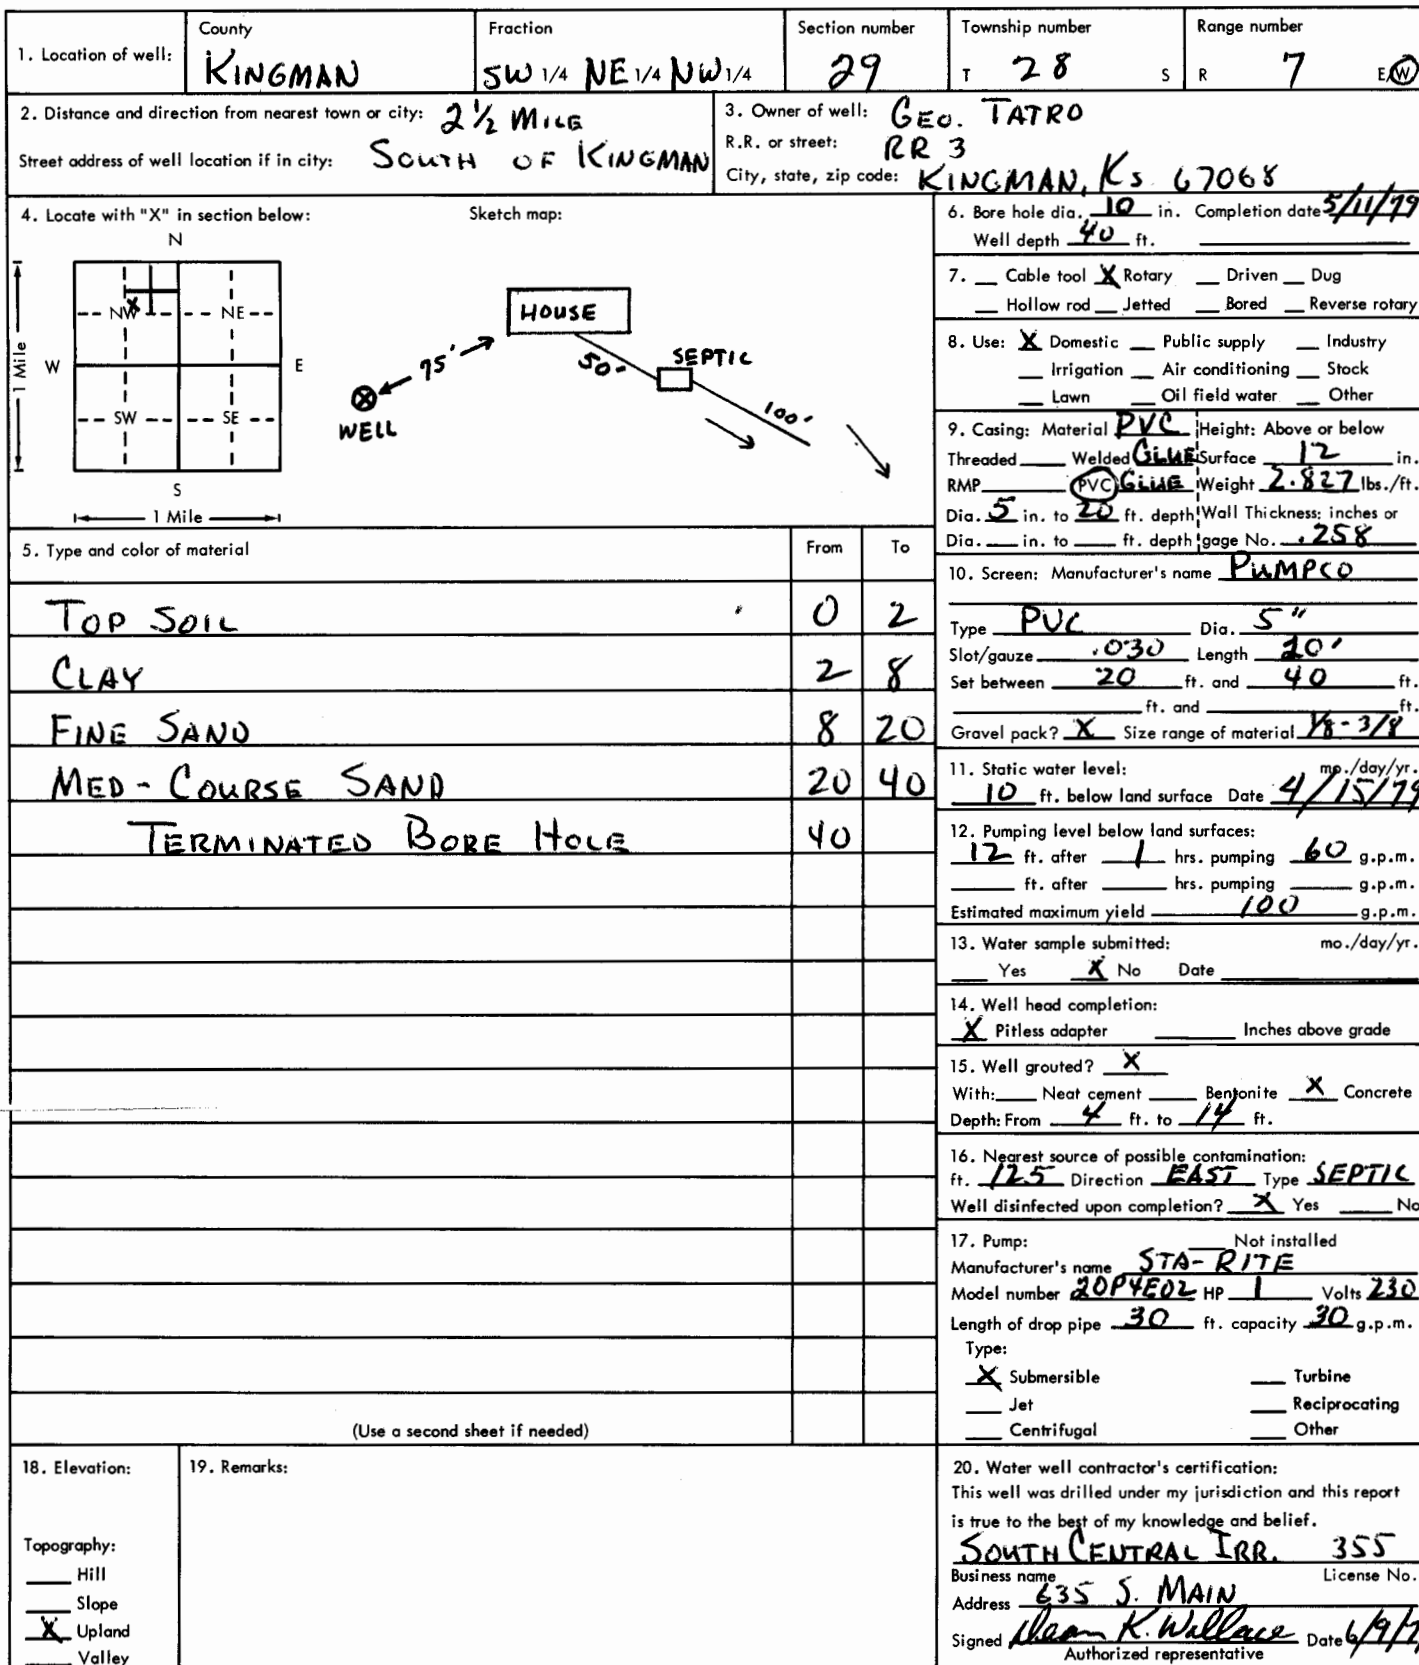 1. Location of well:
County
KINGMAN
Fraction
SW 1/4 NE 1/4 NW 1/4
Section number
29
Township number
T 28 S
Range number
R 7 E/W
2. Distance and direction from nearest town or city: 2 1/2 MILE
Street address of well location if in city: SOUTH OF KINGMAN
3. Owner of well: GEO. TATRO
R.R. or street: RR 3
City, state, zip code: KINGMAN, KS 67068
4. Locate with "X" in section below:
Sketch map:
N
NW X NE
W E
SW SE
S
1 Mile
1 Mile
HOUSE
75'
50'
SEPTIC
100'
WELL
5. Type and color of material From To
TOP SOIL 0 2
CLAY 2 8
FINE SAND 8 20
MED - COURSE SAND 20 40
TERMINATED BORE HOLE 40
(Use a second sheet if needed)
6. Bore hole dia. 10 in. Completion date 5/11/79
Well depth 40 ft.
7. Cable tool X Rotary Driven Dug
Hollow rod Jetted Bored Reverse rotary
8. Use: X Domestic Public supply Industry
Irrigation Air conditioning Stock
Lawn Oil field water Other
9. Casing: Material PVC Height: Above or below
Threaded Welded GLUE Surface 12 in.
RMP PVC GLUE Weight 2.827 lbs./ft.
Dia. 5 in. to 20 ft. depth Wall Thickness: inches or
Dia. in. to ft. depth gage No. .258
10. Screen: Manufacturer's name PUMPCO
Type PVC Dia. 5"
Slot/gauze .030 Length 20'
Set between 20 ft. and 40 ft.
ft. and ft.
Gravel pack? X Size range of material 1/8 - 3/8
11. Static water level: mo./day/yr.
10 ft. below land surface Date 4/15/79
12. Pumping level below land surfaces:
12 ft. after 1 hrs. pumping 60 g.p.m.
ft. after hrs. pumping g.p.m.
Estimated maximum yield 100 g.p.m.
13. Water sample submitted: mo./day/yr.
Yes X No Date
14. Well head completion:
X Pitless adapter Inches above grade
15. Well grouted? X
With: Neat cement Bentonite X Concrete
Depth: From 4 ft. to 14 ft.
16. Nearest source of possible contamination:
ft. 125 Direction EAST Type SEPTIC
Well disinfected upon completion? X Yes No
17. Pump: Not installed
Manufacturer's name STA-RITE
Model number 20P4E02 HP 1 Volts 230
Length of drop pipe 30 ft. capacity 30 g.p.m.
Type:
X Submersible Turbine
Jet Reciprocating
Centrifugal Other
18. Elevation:
Topography:
Hill
Slope
X Upland
Valley
19. Remarks:
20. Water well contractor's certification:
This well was drilled under my jurisdiction and this report
is true to the best of my knowledge and belief.
SOUTH CENTRAL IRR. 355
Business name License No.
Address 635 S. MAIN
Signed Dean K. Wallace Date 6/9/7
Authorized representative